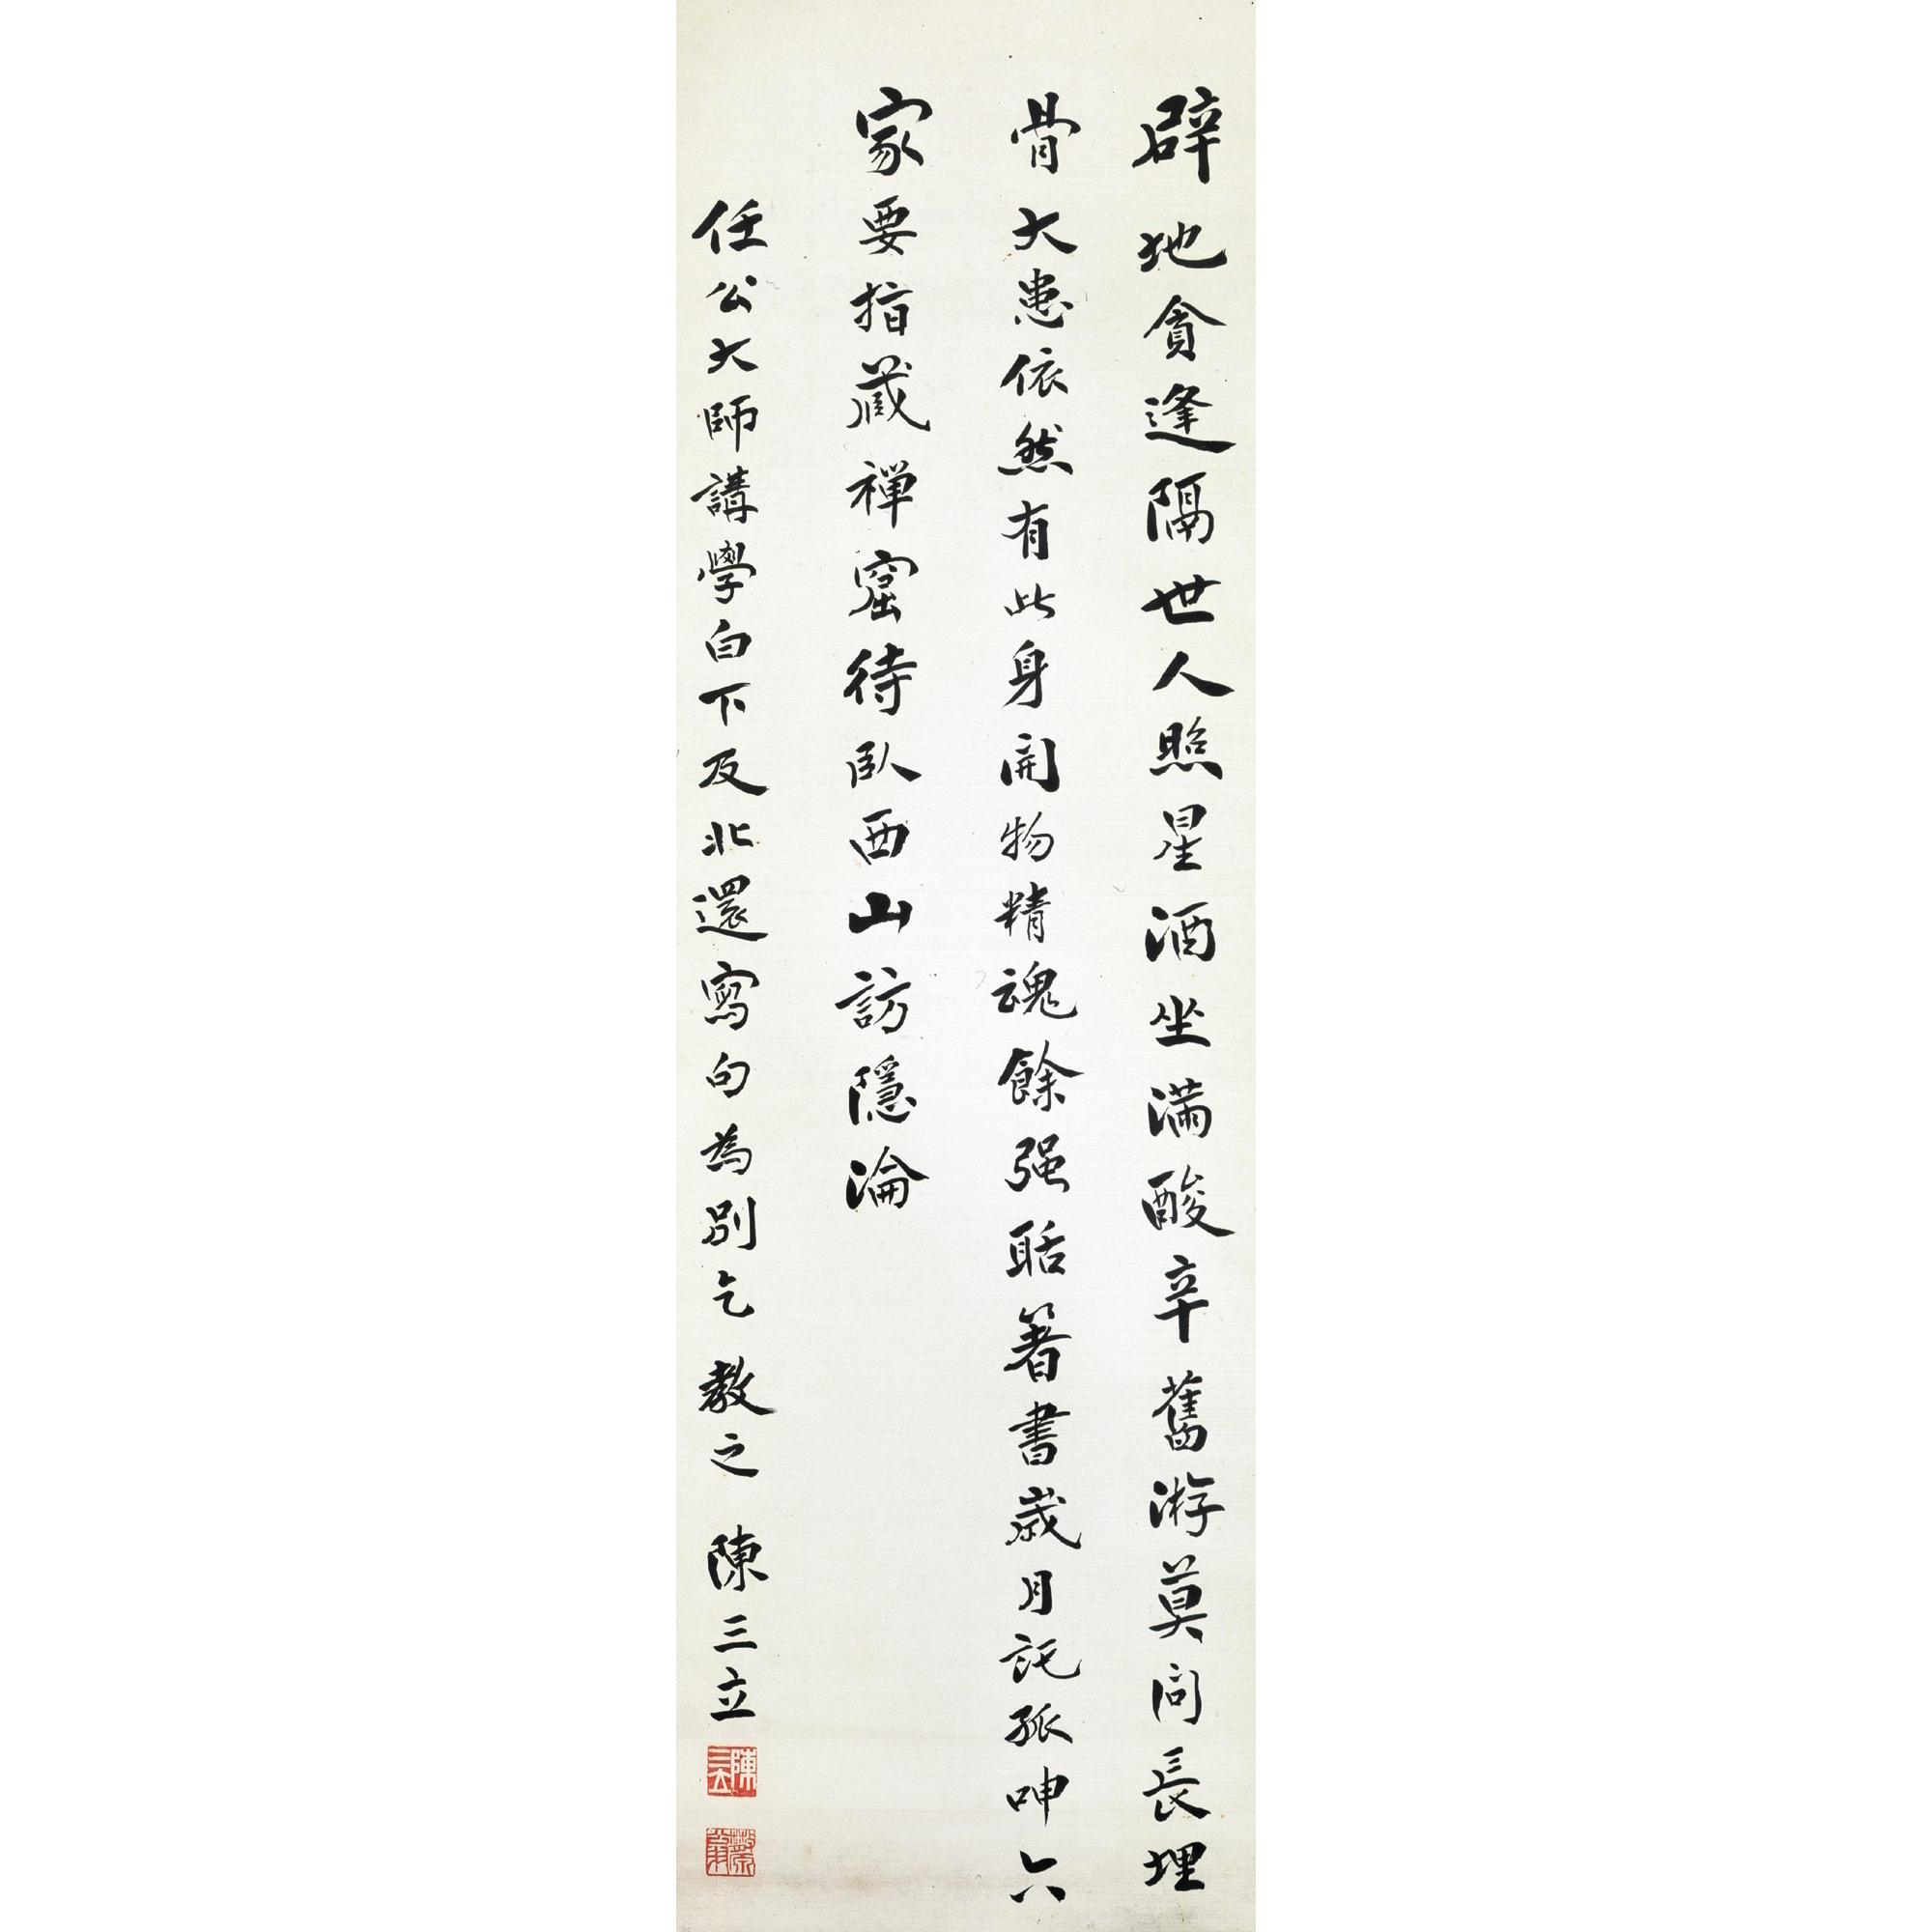 辟地貪逢隔世人照星酒坐滿酸辛舊游莫問長埋
骨大患依然有此身開物精魂餘强聒著書歲月託孤呻六
家要指藏禪窟待臥西山訪隱淪
任公大師講學白下及北還寫句為別乞教之 陳三立
陳三立